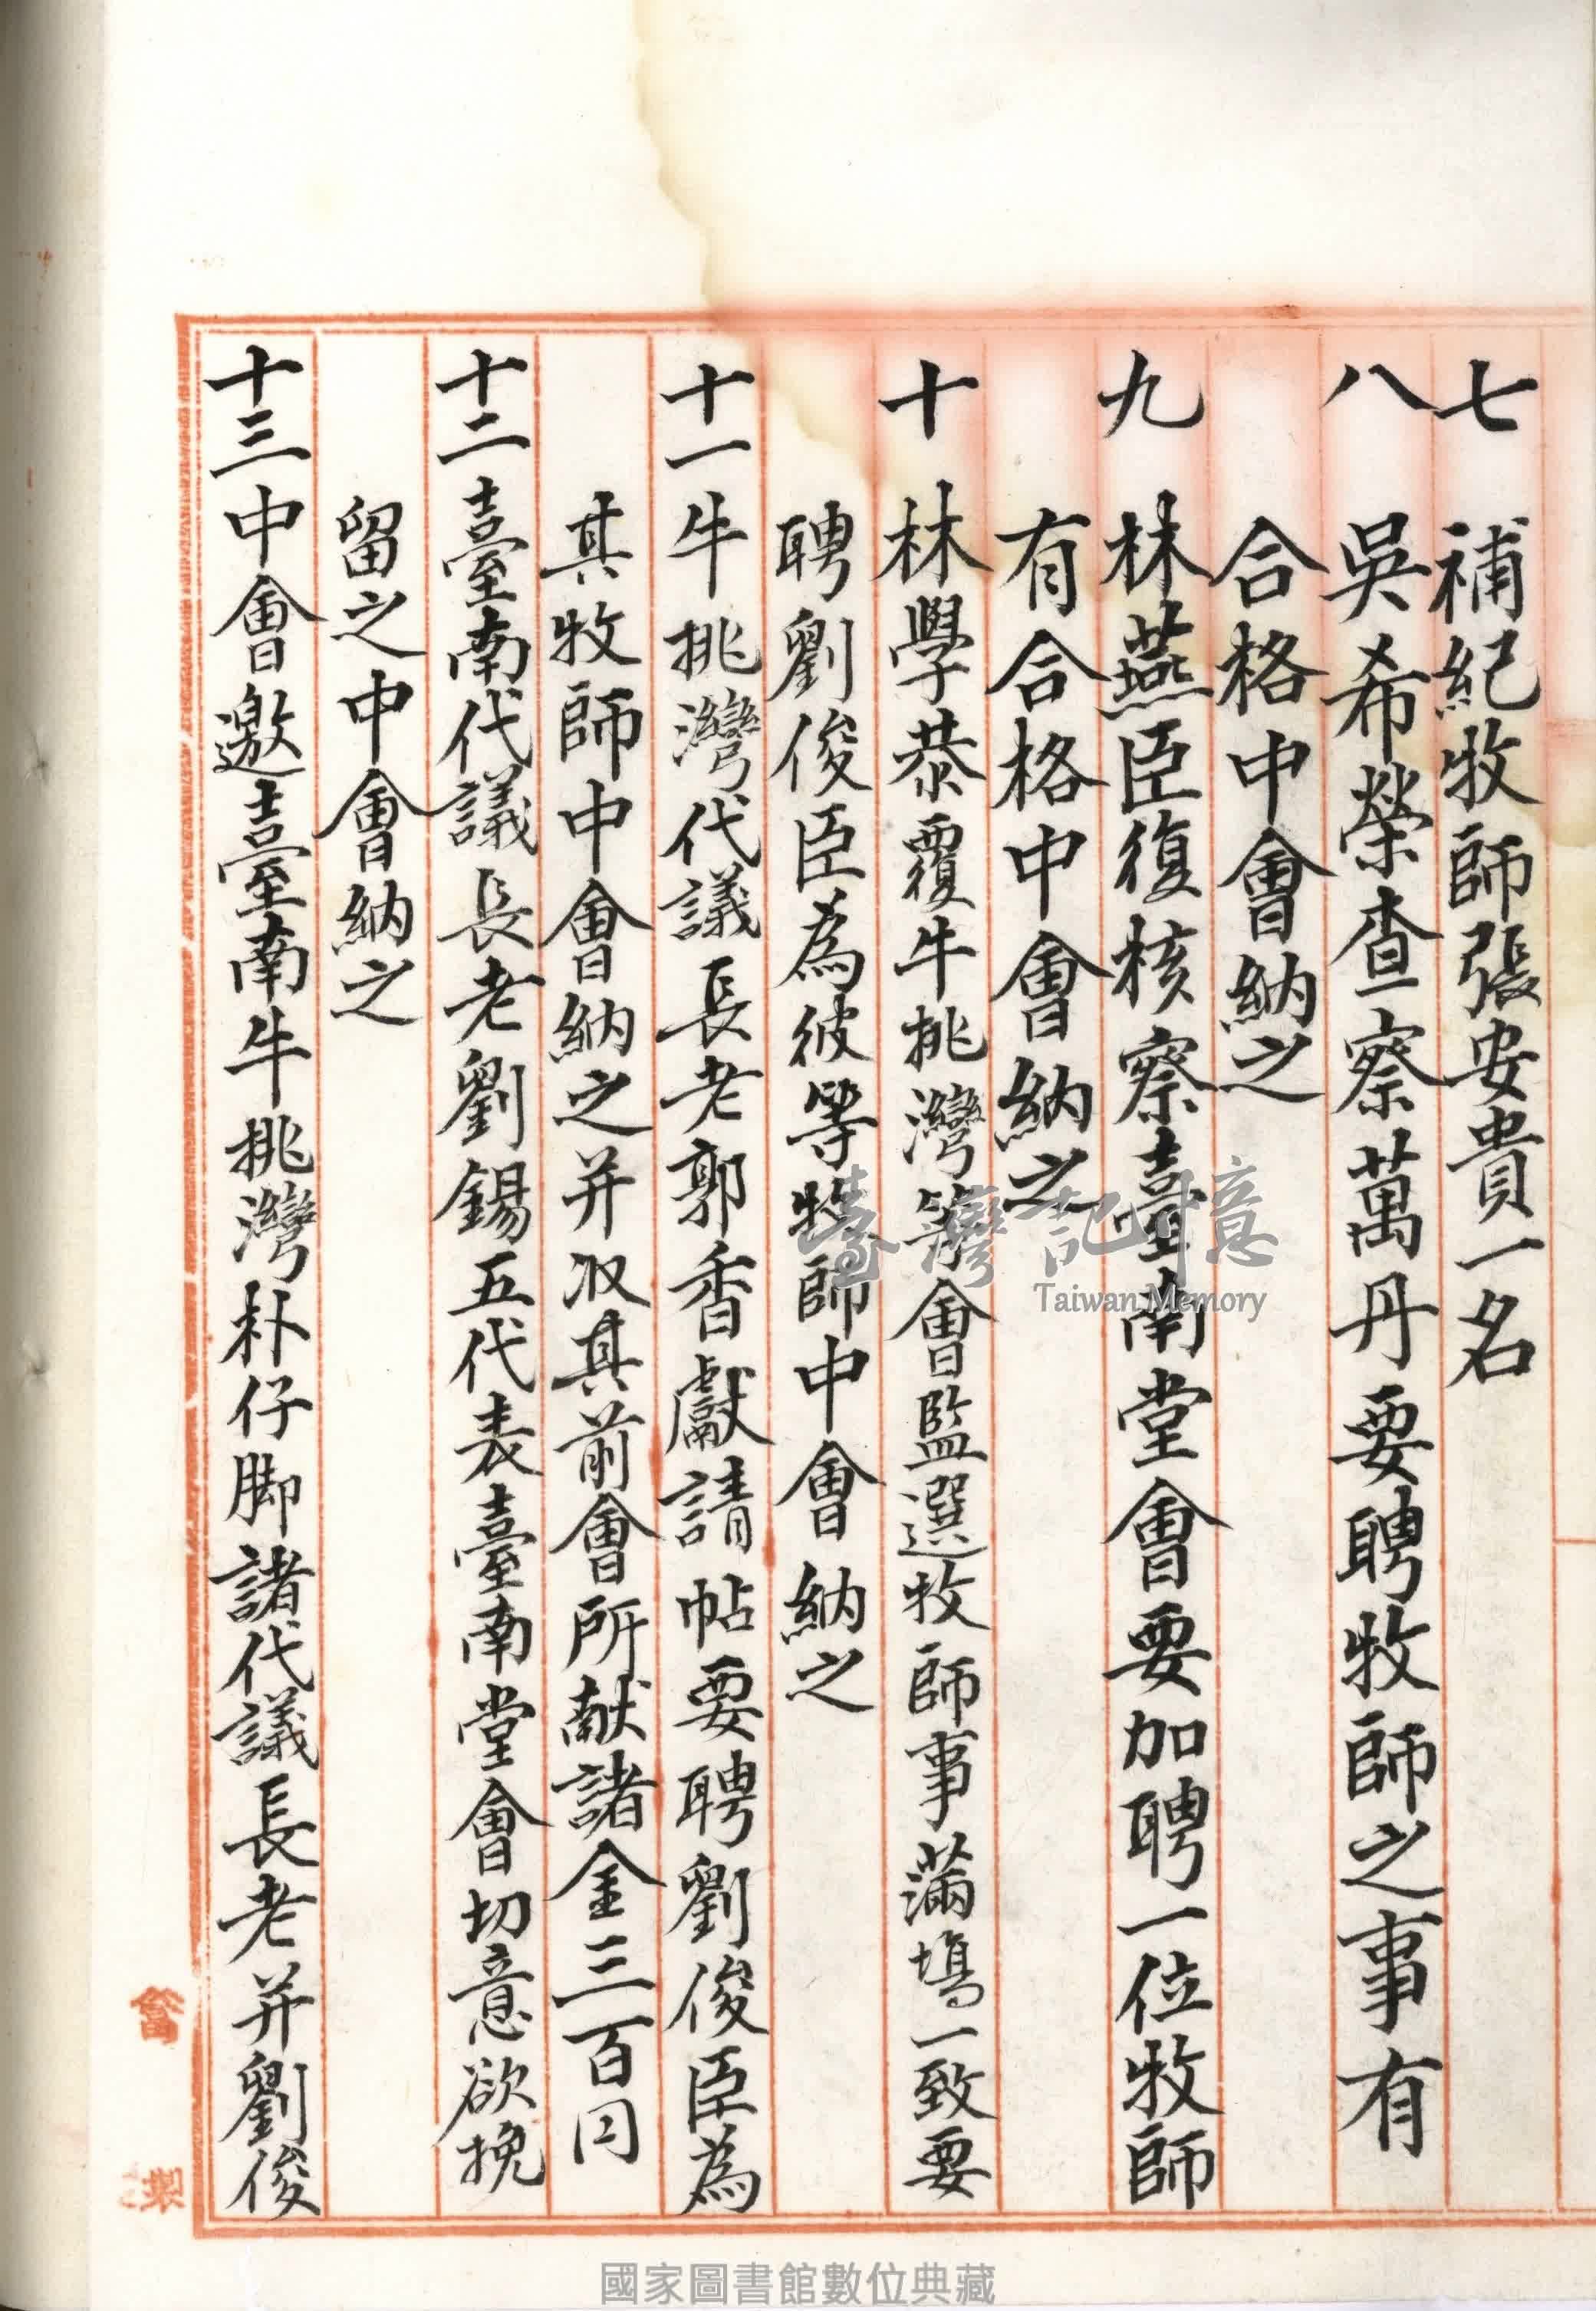 七 補紀牧師張安貴一名
八 吳希榮查察萬丹要聘牧師之事有
合格中會納之
九 林燕臣復核察臺南堂會要加聘一位牧師
有合格中會納之
十 林學恭覆牛挑灣等會監選牧師事滿塲一致要
聘劉俊臣為彼等牧師中會納之
十一 牛挑灣代議長老郭香獻請帖要聘劉俊臣為
其牧師中會納之并收其前會所献諸金三百円
十二 臺南代議長老劉錫五代表臺南堂會切意欲挽
留之中會納之
十三 中會邀臺南牛挑灣朴仔脚諸代議長老并劉俊
臺灣記憶
Taiwan Memory
國家圖書館數位典藏